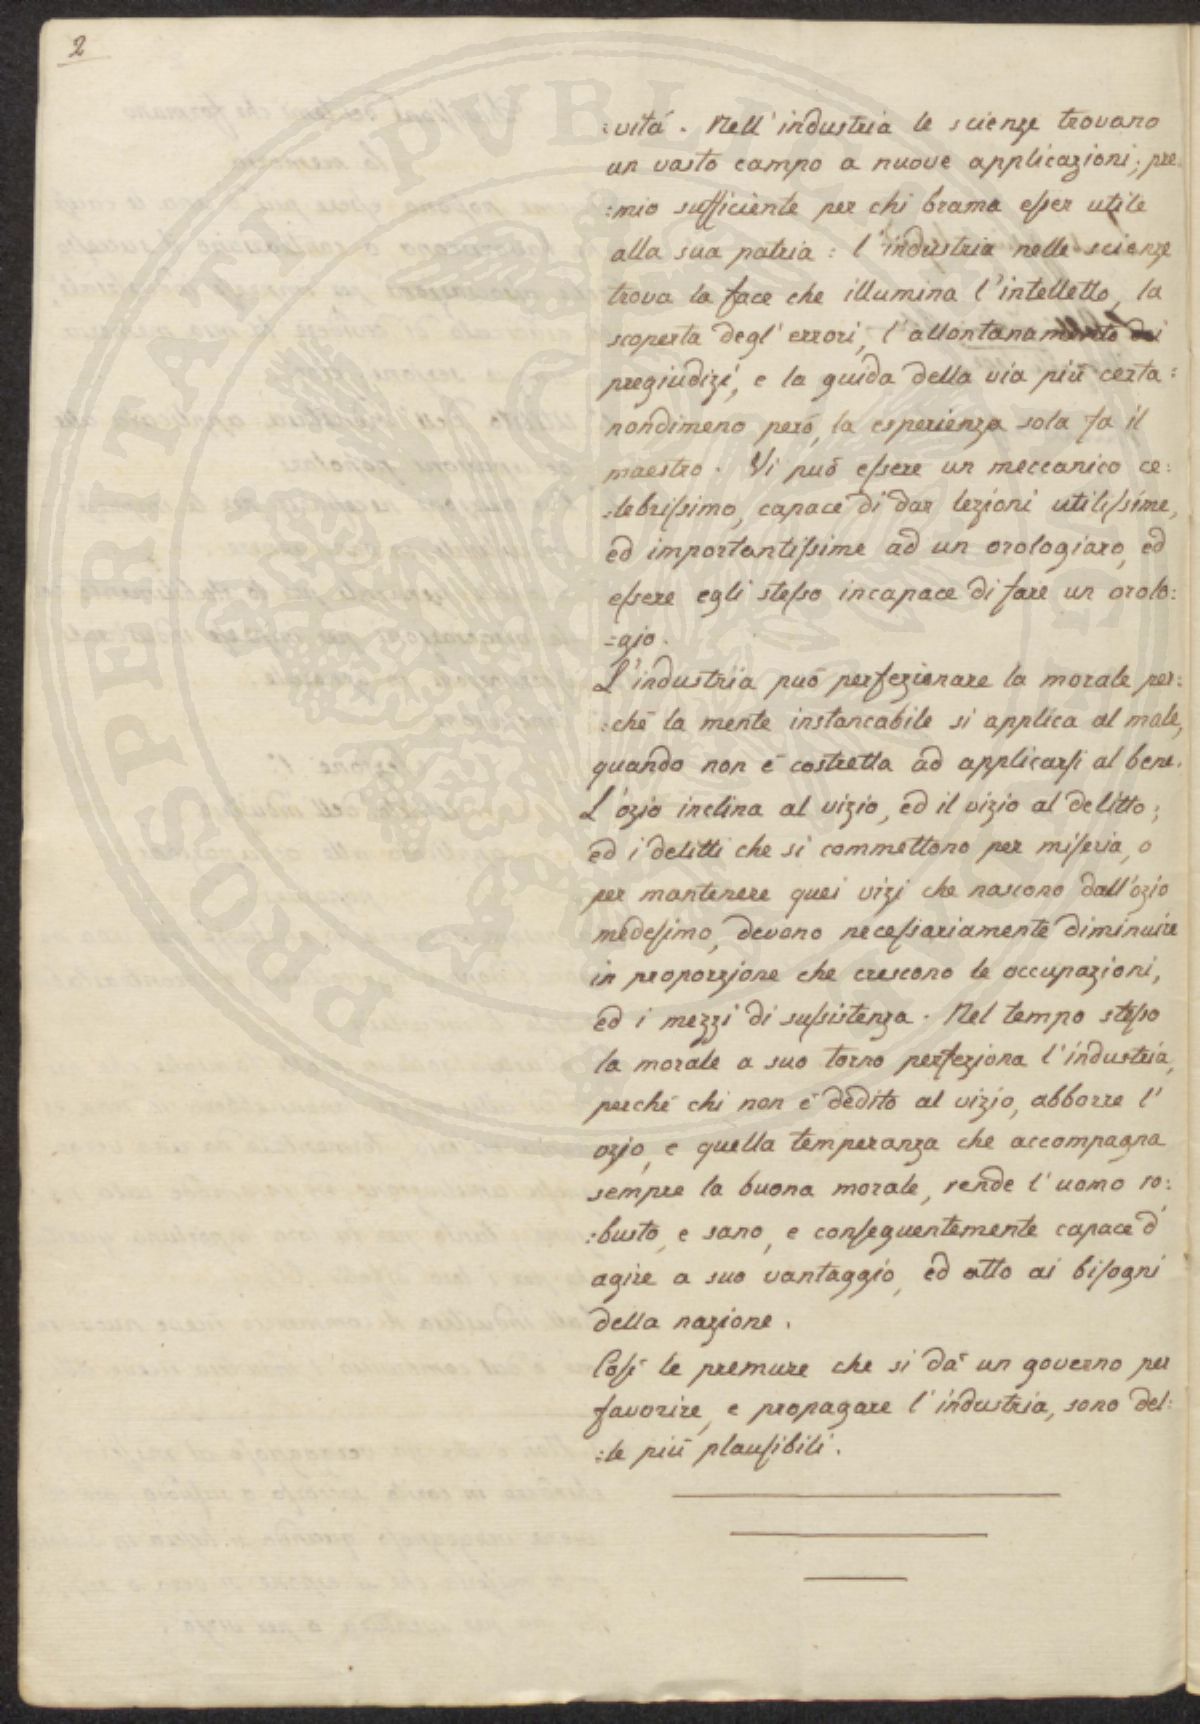 2
:vitá. Nell'industria le scienze trovano
un vasto campo a nuove applicazioni; pre:
:mio sufficiente per chi brama eſser utile
alla sua patria: l'industria nelle scienze
trova la face che illumina l'intelletto, la
scoperta degl'errori, l'allontanamento dei
pregiudizi, e la guida della via più certa:
nondimeno peró, la esperienza sola fa il
maestro. Vi può eſsere un meccanico ce:
:lebriſsimo, capace di dar lezioni utiliſsime,
ed importantiſsime ad un orologiaro, ed
eſsere egli steſso incapace di fare un orolo:
:gio.
L'industria può perfezionare la morale per:
:ché la mente instancabile si applica al male,
quando non é costretta ad applicarſi al bene.
L'ozio inclina al vizio, ed il vizio al delitto;
ed i delitti che si commettono per miſeria, o
per mantenere quei vizi che nascono dall'ozio
medeſimo, devono neceſsariamente diminuire
in proporzione che crescono le occupazioni,
ed i mezzi di suſsistenza. Nel tempo steſso
la morale a suo torno perfeziona l'industria,
perché chi non é dedito al vizio, abborre l'
ozio, e quella temperanza che accompagna
sempre la buona morale, rende l'uomo ro:
:busto, e sano, e conſeguentemente capace d'
agire a suo vantaggio, ed atto ai biſogni
della nazione.
Coſi le premure che si dá un governo per
favorire, e propagare l'industria, sono del:
:le più plauſibili.
PROSPERITATI PUBLICAE